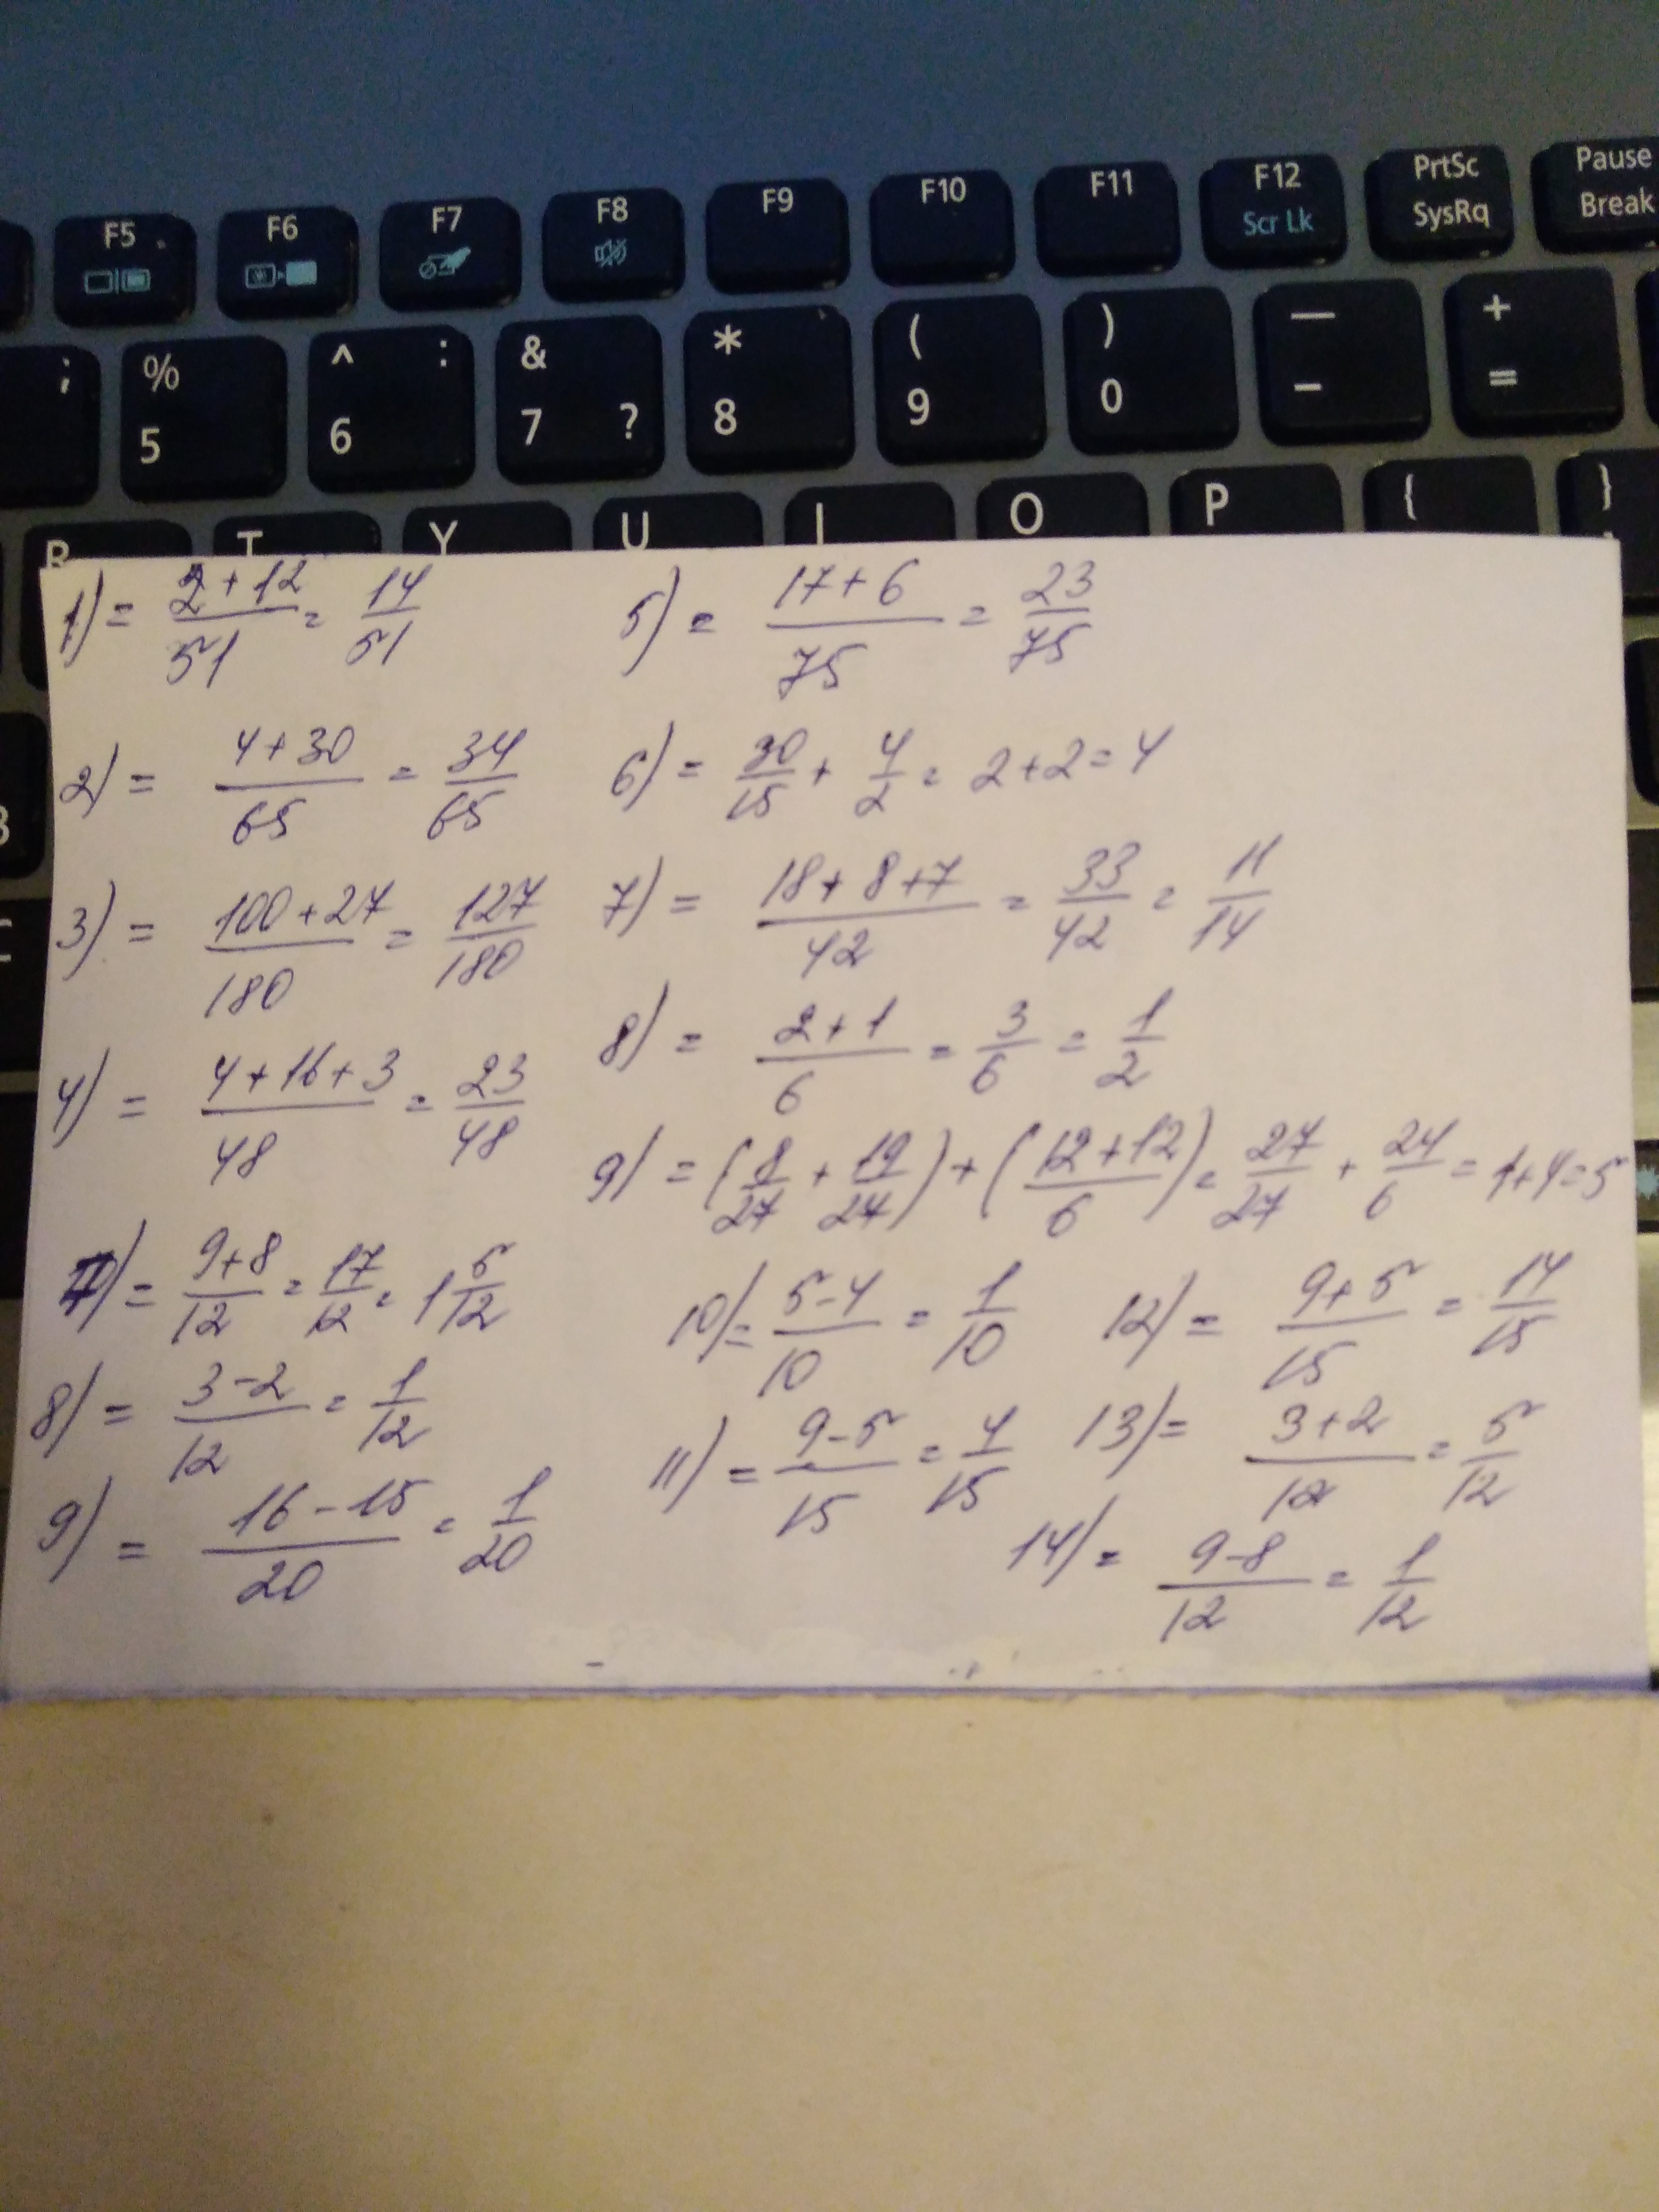 F5 F6 F7 F8 F9 F10 F11 F12 PrtSc Pause
Scr Lk SysRq Break
; % ^ : & * ( ) — +
5 6 7 ? 8 9 0 - =
R T Y U I O P { }
1) = (2+12)/51 = 14/51
2) = (4+30)/65 = 34/65
3) = (100+27)/180 = 127/180
4) = (4+16+3)/48 = 23/48
5) = (17+6)/75 = 23/75
6) = 30/15 + 4/2 = 2+2=4
7) = (18+8+7)/42 = 33/42 = 11/14
8) = (2+1)/6 = 3/6 = 1/2
9) = (8/27 + 19/27) + ((12+12)/6) = 27/27 + 24/6 = 1+4=5
7) = (9+8)/12 = 17/12 = 1 5/12
8) = (3-2)/12 = 1/12
9) = (16-15)/20 = 1/20
10) = (5-4)/10 = 1/10
11) = (9-5)/15 = 4/15
12) = (9+5)/15 = 14/15
13) = (3+2)/12 = 5/12
14) = (9-8)/12 = 1/12